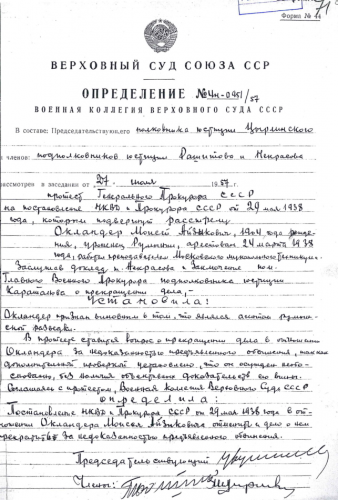 71
Форма № 44
ВЕРХОВНЫЙ СУД СОЮЗА ССР
ОПРЕДЕЛЕНИЕ №4н-0951/57
ВОЕННАЯ КОЛЛЕГИЯ ВЕРХОВНОГО СУДА СССР
В составе: Председательствующего полковника юстиции Цырлинского
и членов: подполковников юстиции и Некрасова
рассмотрев в заседании от 27 июля 1957 г.
протест Генерального Прокурора СССР
на постановление НКВД и Прокурора СССР от 29 мая 1938
года, которым подвергнут расстрелу
Окландер Моисей Айзикович, 1904 года рожде-
ния, уроженец Румынии, арестован 24 марта 1938
года, работал преподавателем Московского техникума.
Заслушав доклад т. Некрасова и заключение пом.
Главного Военного Прокурора подполковника юстиции
о прекращении дела,-
Установила:
Окландер признан виновным в том, что являлся агентом румын-
ской разведки.
В протесте ставится вопрос о прекращении дела в отношении
Окландера за недоказанностью предъявленного обвинения, так как
дополнительной проверкой установлено, что он осужден необо-
снованно, без наличия объективных доказательств его вины.
Соглашаясь с протестом, Военная Коллегия Верховного Суда СССР
определила:
Постановление НКВД и Прокурора СССР от 29 мая 1938 года в от-
ношении Окландера Моисея Айзиковича отменить и дело о нем
прекратить за недоказанностью предъявленного обвинения.
Председательствующий
Члены: